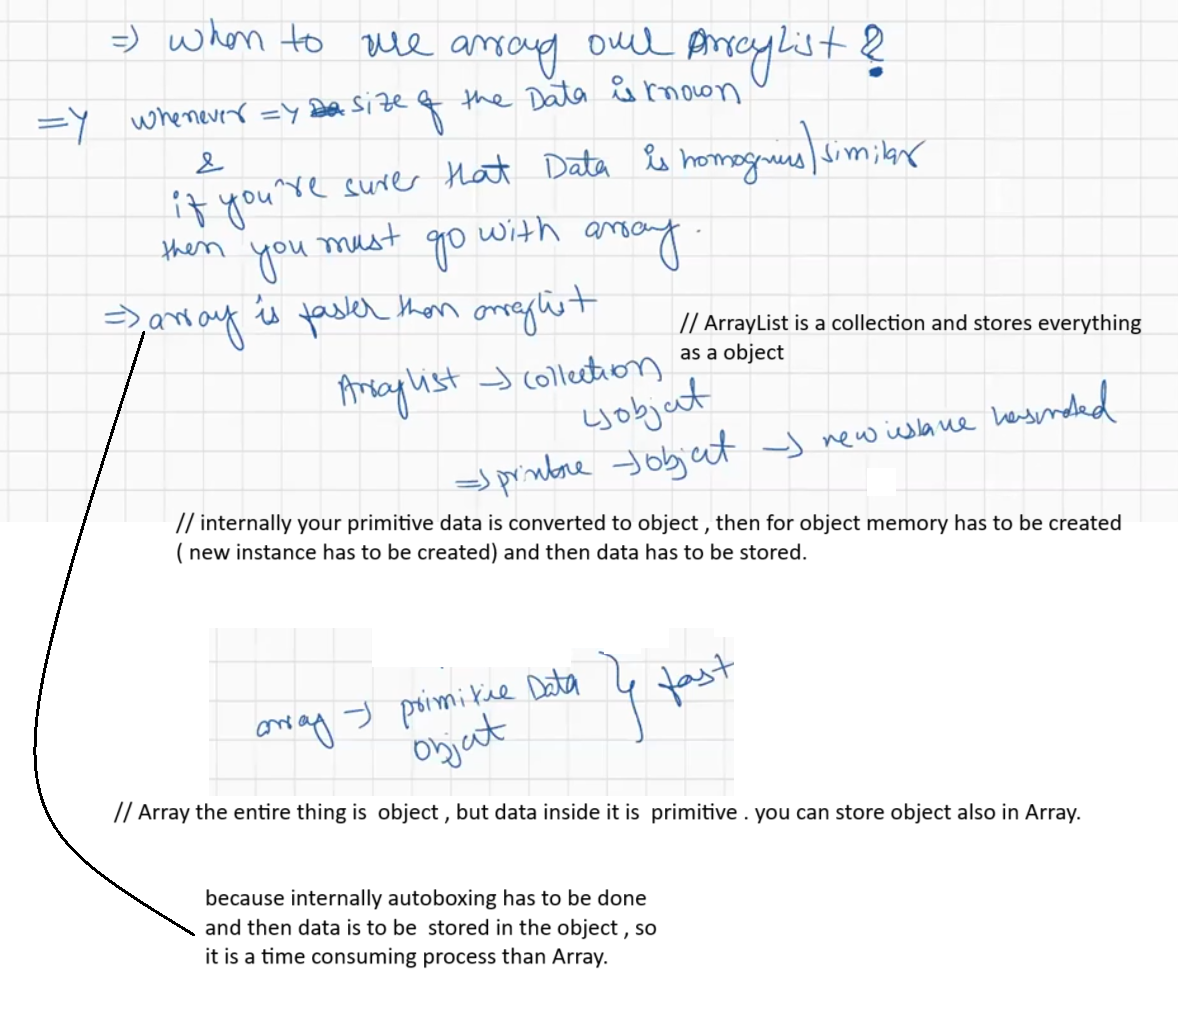 => when to use array over ArrayList ?
=> whenever => size of the Data is known
&
if you're sure that Data is homognius/similar
then you must go with array.
=> array is faster than arraylist
// ArrayList is a collection and stores everything
as a object
Arraylist -> collection
↳ object
=> primitive -> object -> new
// internally your primitive data is converted to object , then for object memory has to be created
( new instance has to be created) and then data has to be stored.
array -> primitive Data } fast
object
// Array the entire thing is object , but data inside it is primitive . you can store object also in Array.
because internally autoboxing has to be done
and then data is to be stored in the object , so
it is a time consuming process than Array.